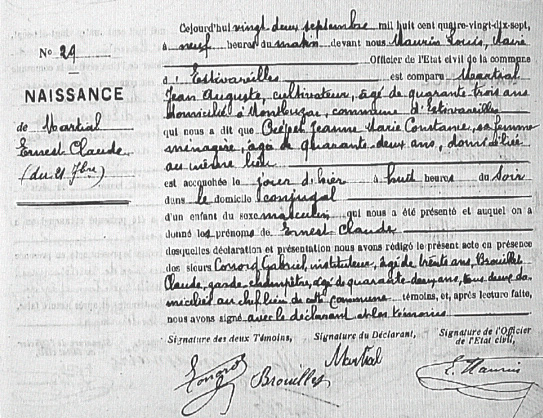 No 29
NAISSANCE
de Martial
Ernest Claude
(du 21 7bre)
Cejourd'hui vingt deux septembre mil huit cent quatre-vingt-dix-sept,
à neuf heures du matin devant nous Maurin Louis, Maire
Officier de l'Etat civil de la commune
d'Estivareilles est comparu Martial
Jean Auguste, cultivateur, âgé de quarante trois ans
domicilié à Montbuzac, commune d'Estivareilles
qui nous a dit que Jeanne Marie Constance, sa femme
ménagère, âgée de quarante-deux ans, domiciliée
au même lieu
est accouchée le jour d'hier à huit heures du soir
dans le domicile conjugal
d'un enfant du sexe masculin qui nous a été présenté et auquel on a
donné les prénoms de Ernest Claude
desquelles déclaration et présentation nous avons rédigé le présent acte en présence
des sieurs Gabriel, instituteur, âgé de trente ans, Brouillet
Claude, garde-champêtre, âgé de quarante-deux ans, tous deux do
micilié au chef lieu de cette commune témoins, et, après lecture faite,
nous avons signé avec le déclarant et les témoins
Signature des deux Témoins, Signature du Déclarant, Signature de l'Officier de l'Etat civil,
Brouillet Martial L. Maurin